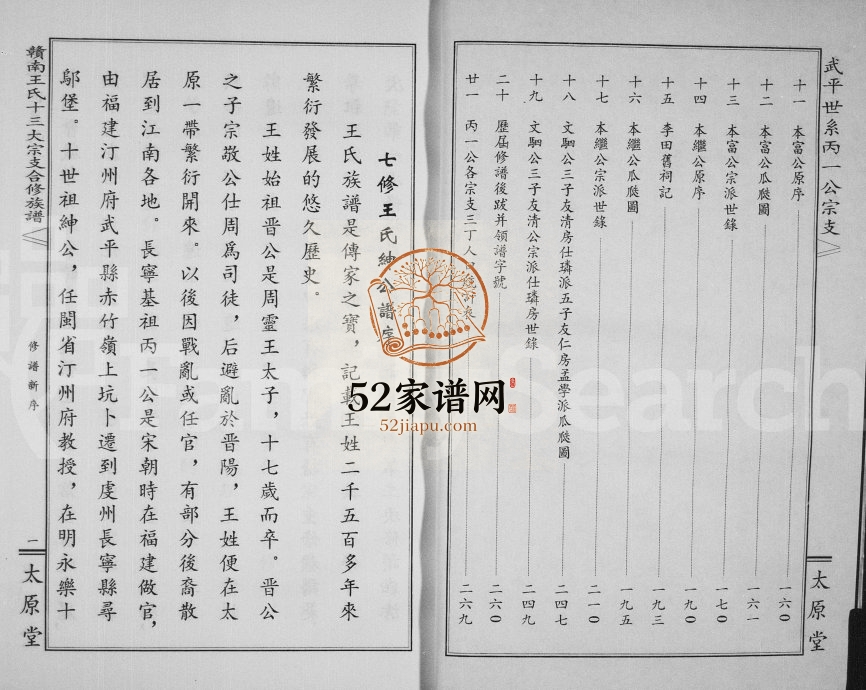 武平世系丙一公宗支
十一 本富公原序 一六〇
十二 本富公瓜瓞圖 一六一
十三 本富公宗派世錄 一七〇
十四 本繼公原序 一九〇
十五 李田舊祠記 一九三
十六 本繼公瓜瓞圖 一九五
十七 本繼公宗派世錄 二一〇
十八 文駟公三子友清房仕璘派五子友仁房孟學派瓜瓞圖 二四七
十九 文駟公三子友清公宗派仕璘房世錄 二四九
二十 歷屆修譜後跋并領譜字號 二六〇
廿一 丙一公各宗支三丁人口統計表 二六九
太原堂
七修王氏紳公譜序
王氏族譜是傳家之寶，記載王姓二千五百多年來
繁衍發展的悠久歷史。
王姓始祖晉公是周靈王太子，十七歲而卒。晉公
之子宗敬公仕周爲司徒，后避亂於晋陽，王姓便在太
原一帶繁衍開來。以後因戰亂或任官，有部分後裔散
居到江南各地。長寧基祖丙一公是宋朝時在福建做官，
由福建汀州府武平縣赤竹嶺上坑卜遷到虔州長寧縣尋
鄔堡。十世祖紳公，任閩省汀州府教授，在明永樂十
修譜新序
一
贛南王氏十三大宗支合修族譜
太原堂
52家谱网
52jiapu.com